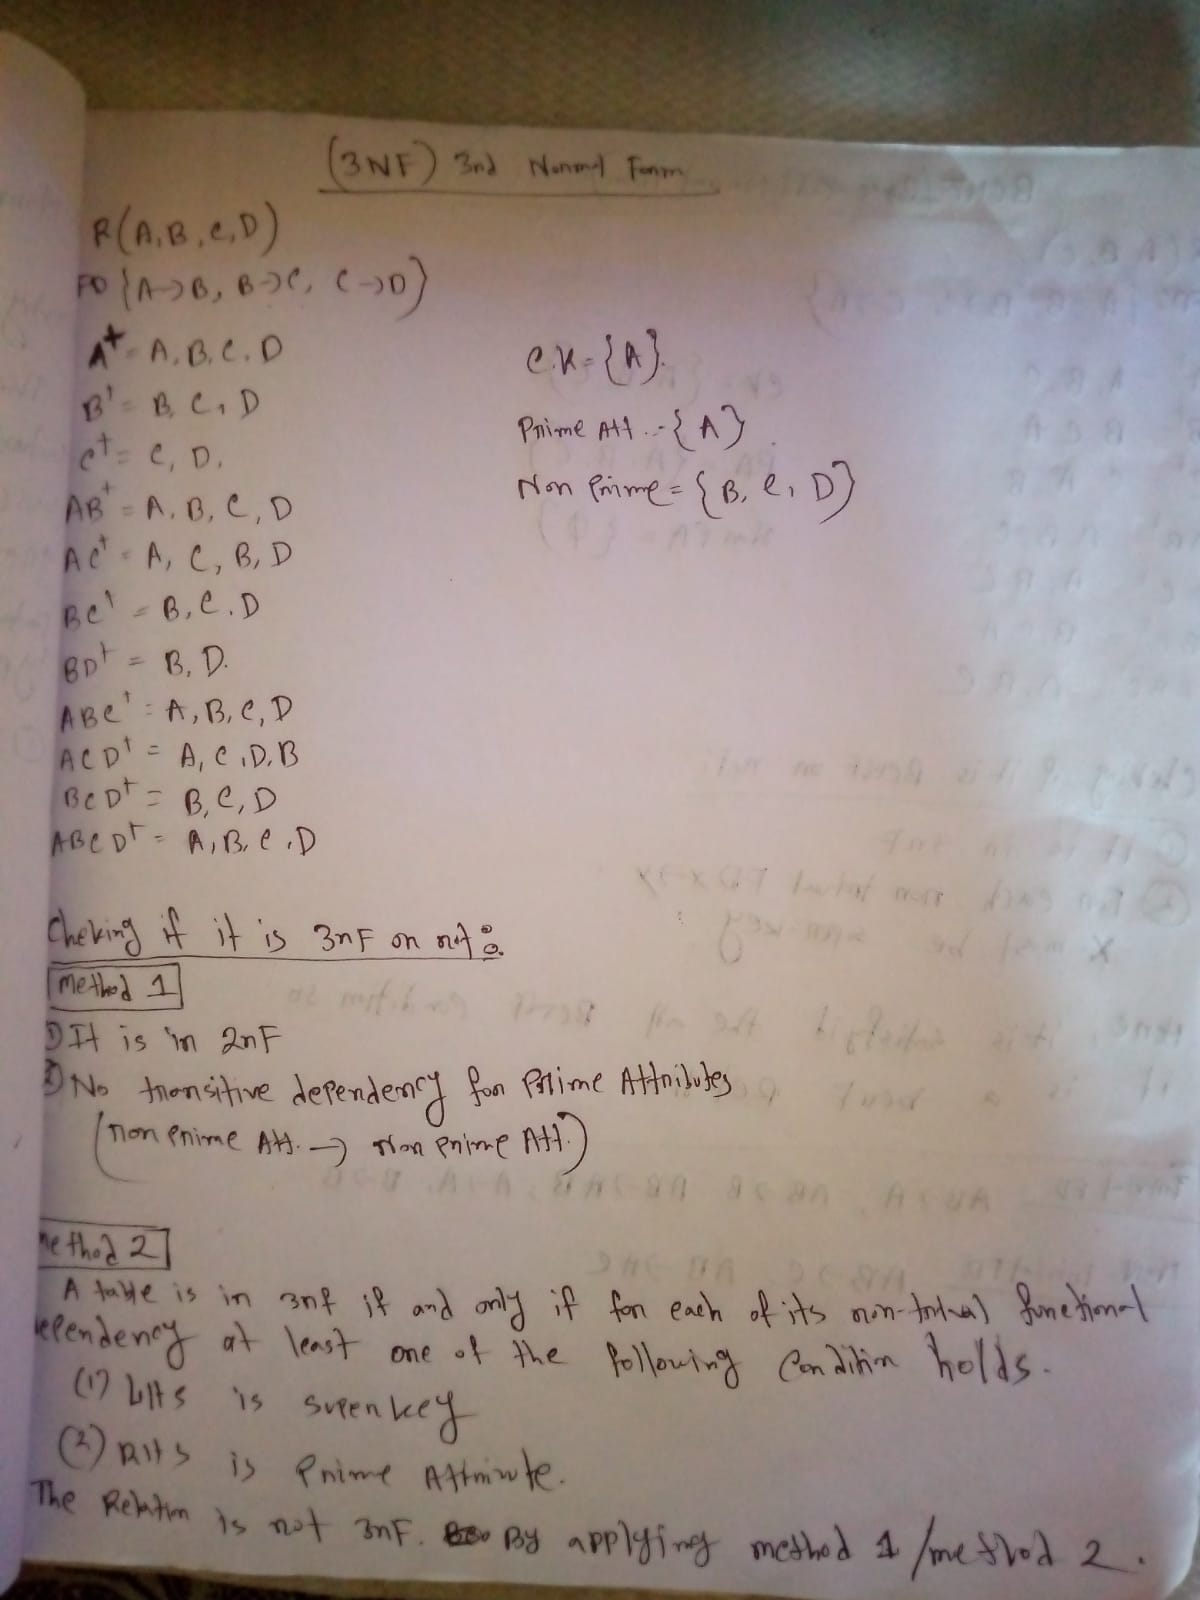 (3NF) 3nd Normal Form
R(A,B,C,D)
FD {A->B, B->C, C->D}
A+ = A, B, C, D
C.K = {A}.
B+ = B, C, D
Prime Att. = {A}
C+ = C, D.
Non Prime = {B, C, D}
AB+ = A, B, C, D
AC+ = A, C, B, D
BC+ = B, C, D
BD+ = B, D.
ABC+ = A, B, C, D
ACD+ = A, C, D, B
BCD+ = B, C, D
ABCD+ = A, B, C, D
Cheking if it is 3nF or not:
method 1
1) It is in 2nF
2) No transitive dependency for Prime Attributes
(non prime Att. -> Non prime Att.)
method 2
A table is in 3nf if and only if for each of its non-trival functional
dependency at least one of the following Condition holds.
(1) LHS is superkey
(2) RHS is Prime Attribute.
The Relation is not 3nF. By applying method 1/method 2.